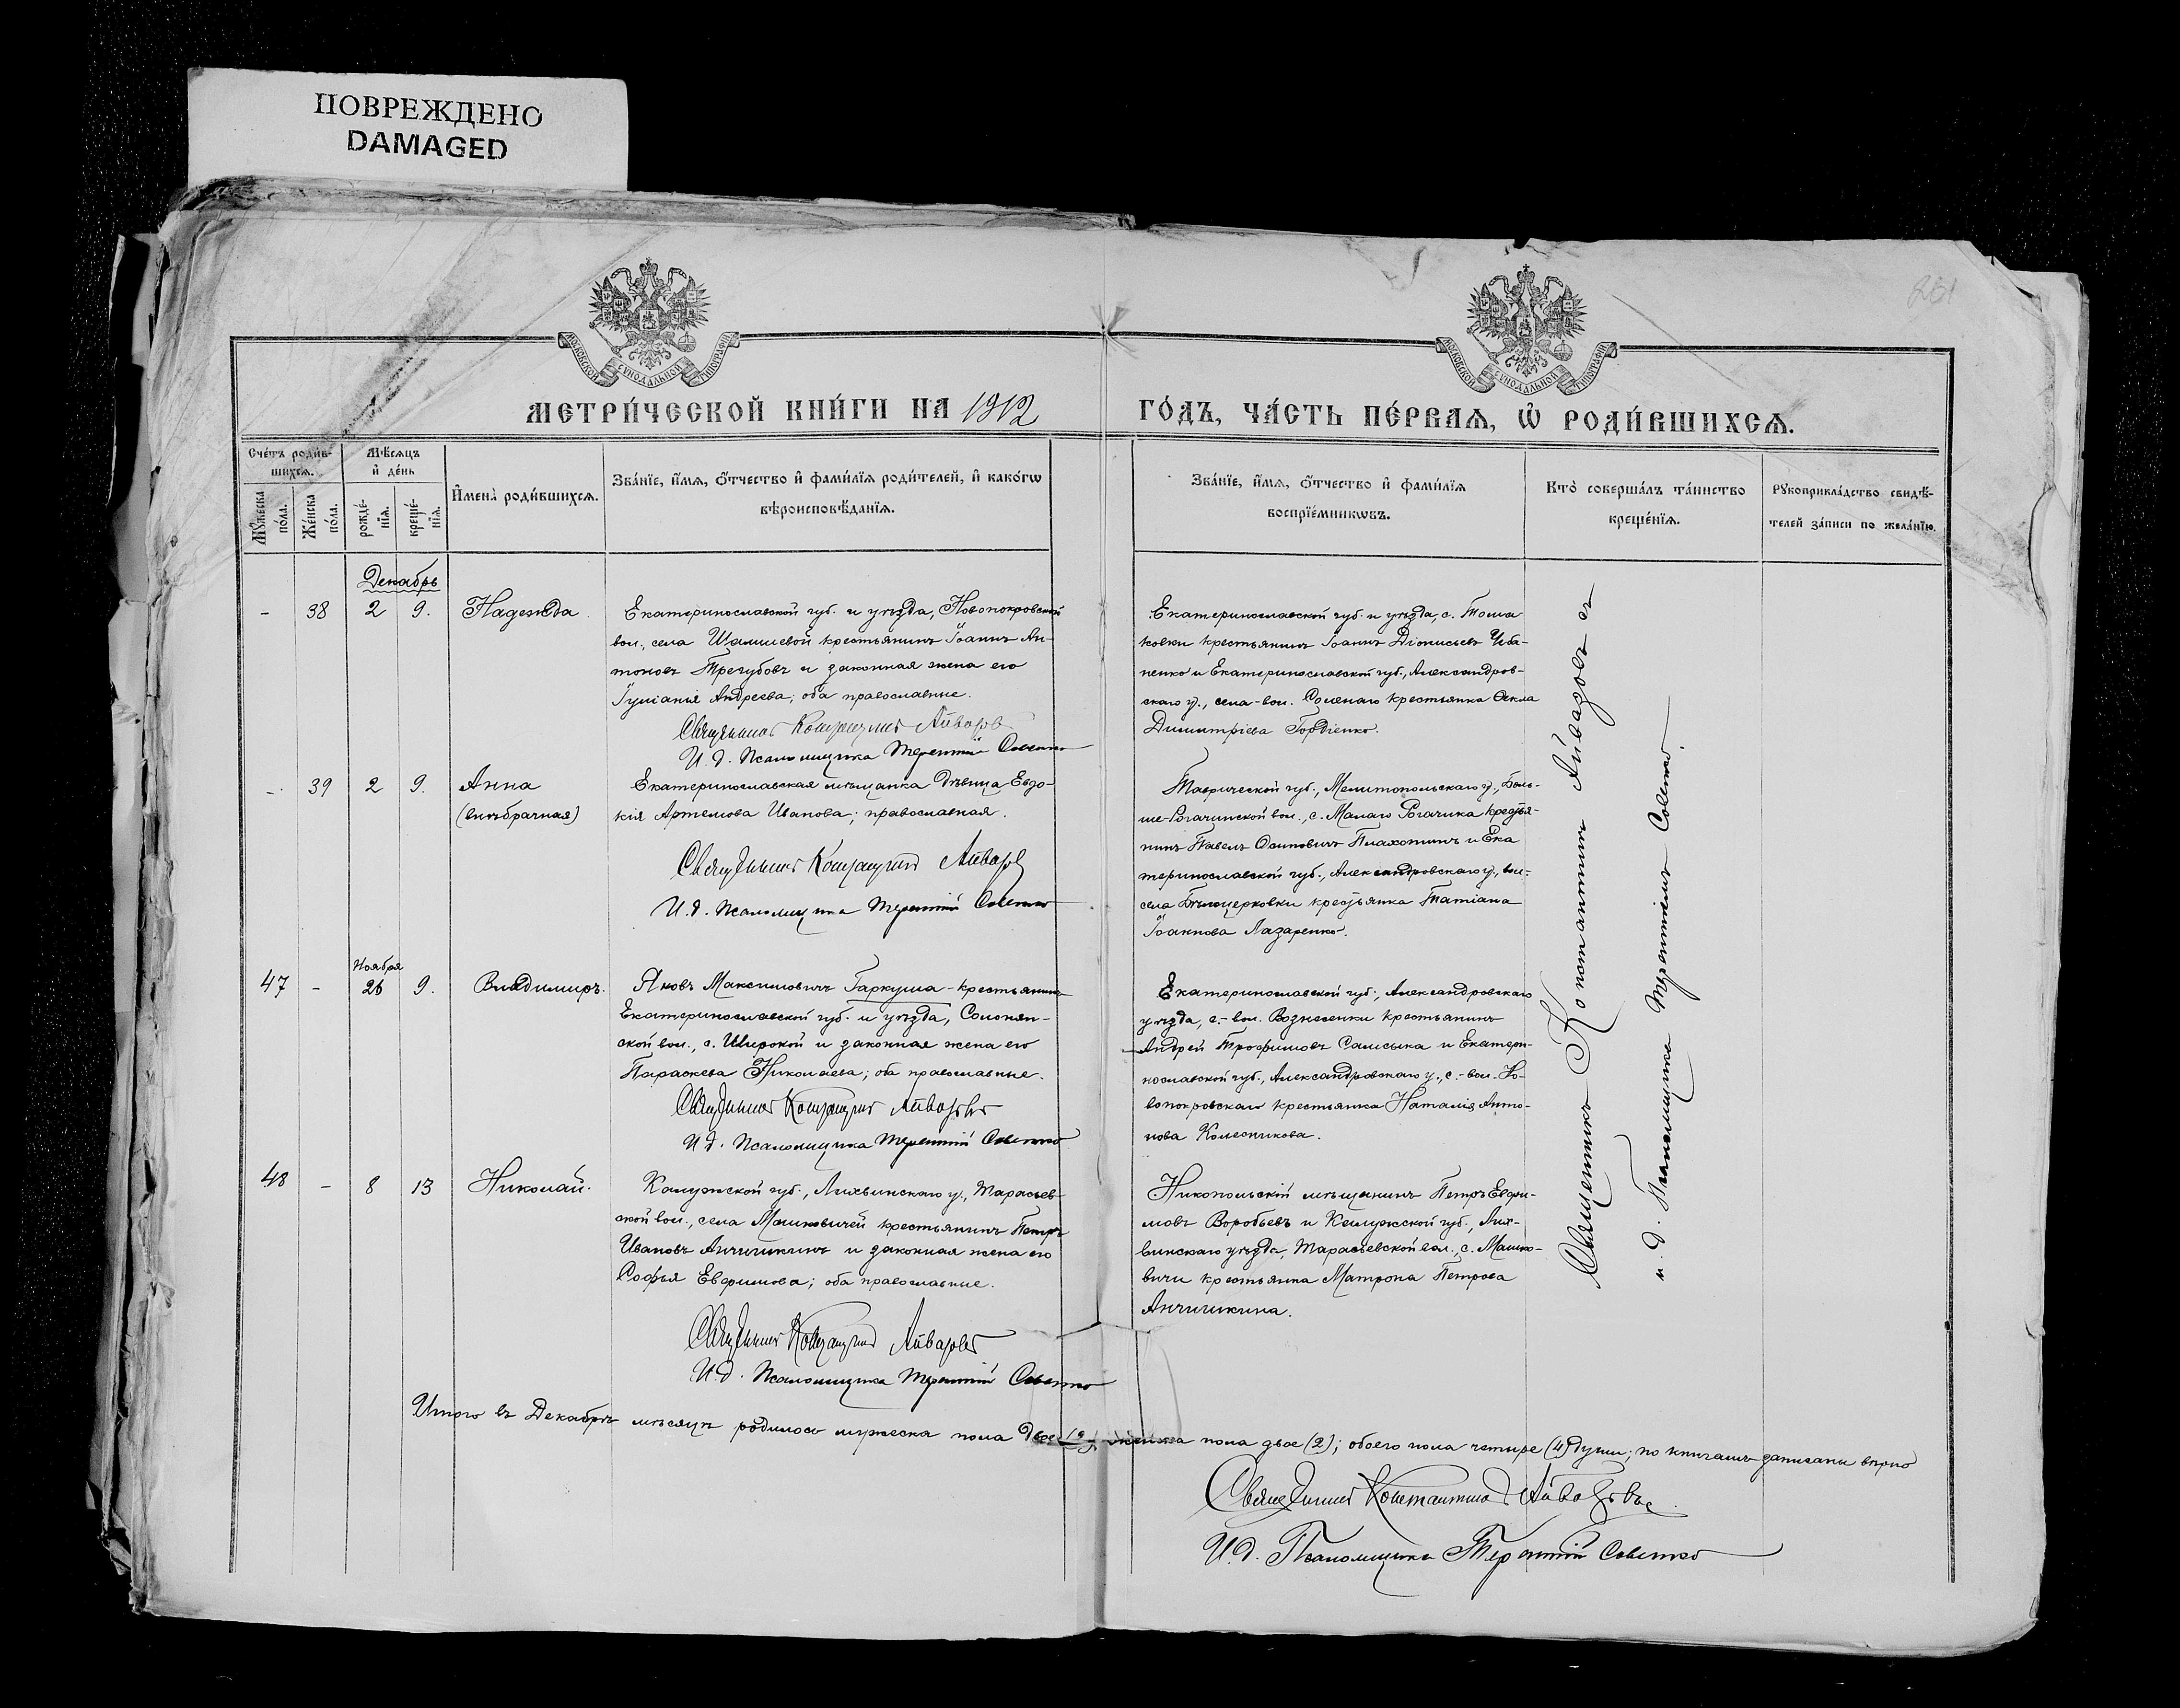 ПОВРЕЖДЕНО
DAMAGED
261
МОСКОВСКОЙ СѴНОДАЛЬНОЙ ТИПОГРАФІИ
МОСКОВСКОЙ СѴНОДАЛЬНОЙ ТИПОГРАФІИ
МЕТРИ́ЧЕСКОЙ КНИ́ГИ НА 1912
ГО́ДЪ, ЧА́СТЬ ПЕ́РВАѦ, Ѡ҆ РОДИ́ВШИХСѦ.
Сче́тъ роди́в-
шихсѧ.
Мѣ́сѧцъ
и҆ де́нь
Мꙋ́жеска по́ла.
Же́нска по́ла.
рожде́-
нїѧ.
креще́-
нїѧ.
И҆мена̀ роди́вшихсѧ.
Зва́нїе, и҆́мѧ, ѻ҆́тчество и҆ фами́лїѧ роди́телей, и҆ како́гѡ
вѣроисповѣ́данїѧ.
Зва́нїе, и҆́мѧ, ѻ҆́тчество и҆ фами́лїѧ
воспрїе́мникѡвъ.
Кто̀ соверша́лъ та́инство
креще́нїѧ.
Рꙋкоприкла́дство свидѣ́-
телей за́писи по жела́нїю.
Декабрь
- 38 2 9. Надежда
Екатеринославской губ. и уѣзда, Новопокровской
вол., села Шолмиевой крестьянинъ Іоаннъ Ан-
тоновъ Трегубовъ и законная жена его
Іуліанія Андреева; оба православные.
Священникъ Константинъ Айвазовъ
И. д. Псаломщика Терентій Совенко
Екатеринославской губ. и уѣзда, с. Тома
ковки крестьянинъ Іоаннъ Діонисьевъ Чба-
ненко и Екатеринославской губ., Александров-
скаго у., села-вол. Соленаго крестьянка Ѳекла
Димитріева Гордіенко.
- 39 2 9. Анна
(внѣбрачная)
Екатеринославская мѣщанка дѣвица Евдо-
кія Артемова Иванова; православная.
Священникъ Константинъ Айвазовъ
И. д. Псаломщика Терентій Совенко
Таврической губ., Мелитопольскаго у., Боль-
ше-Рогачинской вол., с. Малаго Рогачика крестья-
нинъ Павелъ Осиповичъ Плахотинъ и Ека
теринославской губ., Александровскаго у., вол.-
села Бѣлоцерковки крестьянка Татіана
Іоаннова Лазаренко.
Ноября
47 - 26 9. Владимиръ.
Яковъ Максимовичъ Гаркуша - крестьянинъ
Екатеринославской губ. и уѣзда, Солонян-
ской вол., с. Широкой и законная жена его
Параскева Николаева; оба православные.
Священникъ Константинъ Айвазовъ
И. д. Псаломщика Терентій Совенко
Екатеринославской губ., Александровскаго
уѣзда, с.-вол. Вознесенки крестьянинъ
Андрей Трофимовъ Самсыка и Екатери-
нославской губ., Александровскаго у., с.-вол. Но-
вопокровскаго крестьянка Наталія Анто-
нова Колесникова.
48 - 8 13 Николай.
Калужской губ., Лихвинскаго у., Тарасьев-
ской вол., села Машковичей крестьянинъ Петръ
Ивановъ Анчишкинъ и законная жена его
Софья Евфимова; оба православные.
Священникъ Константинъ Айвазовъ
И. д. Псаломщика Терентій Совенко
Никопольскій мѣщанинъ Петръ Евфи-
мовъ Воробьевъ и Калужской губ., Лих-
винскаго уѣзда, Тарасьевской вол., с. Машко-
вичи крестьянка Матрона Петрова
Анчишкина.
Священникъ Константинъ Айвазовъ
и. д. Псаломщика Терентій Совенко.
Итого въ Декабрѣ мѣсяцѣ родилось мужеска пола двое (2) женска пола двое (2); обоего пола четыре (4) души; по книгамъ записаны вѣрно
Священникъ Константинъ Айвазовъ.
И. д. Псаломщика Терентій Совенко